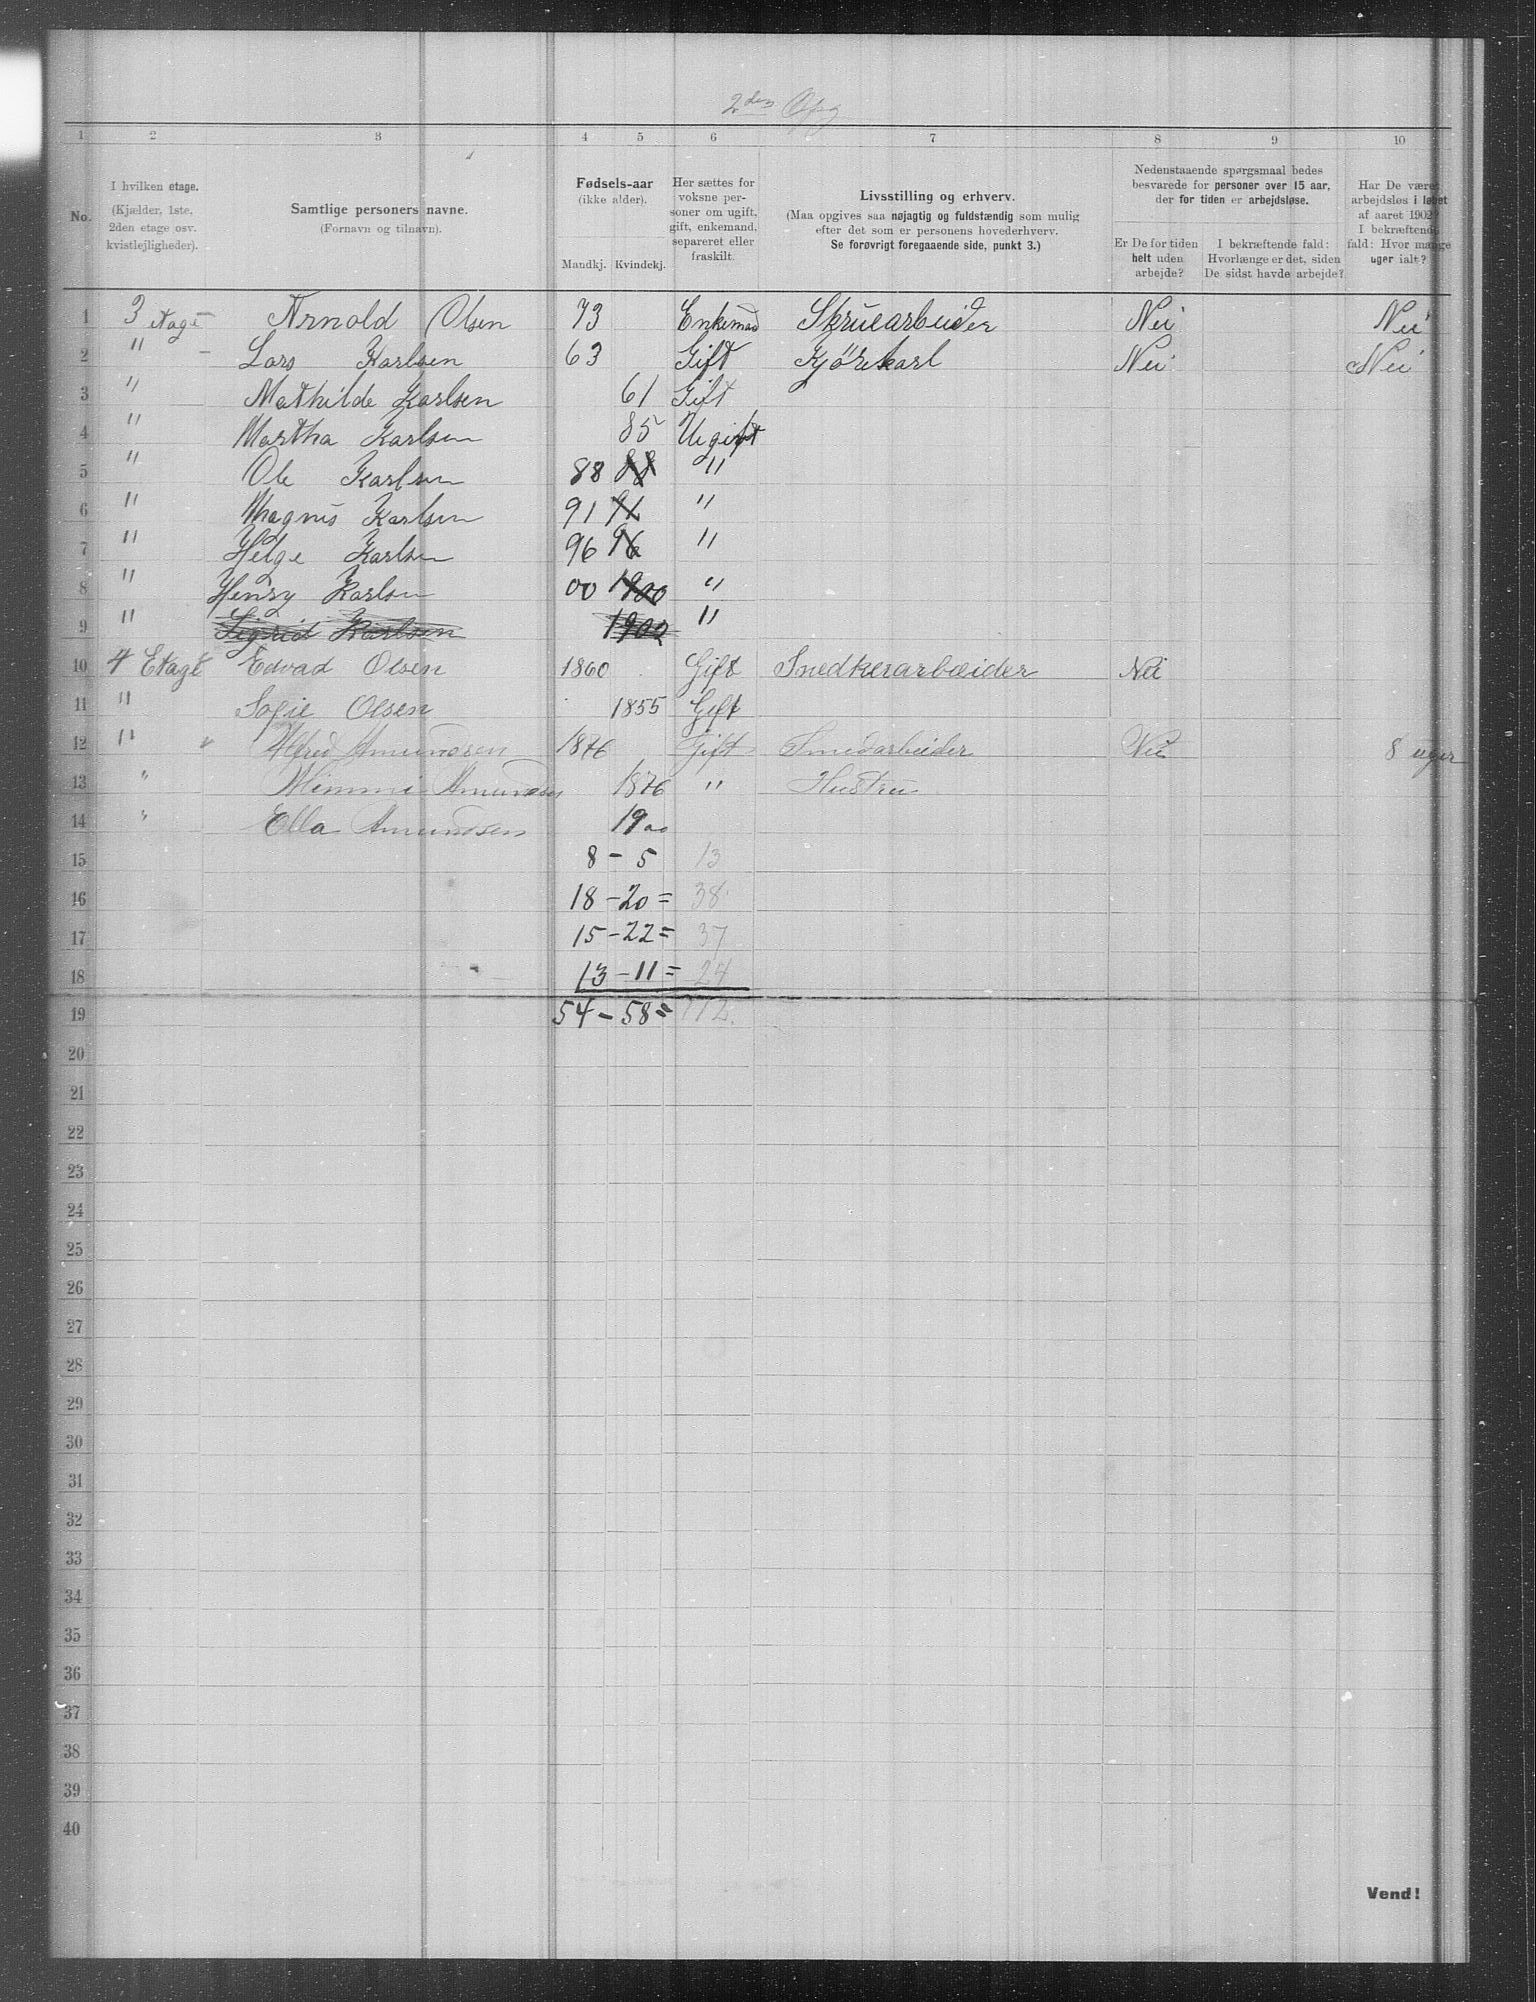 2den Opg
1 2 3 4 5 6 7 8 9 10
No.
I hvilken etage. (Kjælder, 1ste, 2den etage osv. kvistlejligheder).
Samtlige personers navne. (Fornavn og tilnavn).
Fødsels-aar (ikke alder). Mandkj. Kvindekj.
Her sættes for voksne personer om ugift, gift, enkemand, separeret eller fraskilt.
Livsstilling og erhverv. (Maa opgives saa nøjagtig og fuldstændig som mulig efter det som er personens hovederhverv. Se forøvrigt foregaaende side, punkt 3.)
Nedenstaaende spørgsmaal bedes besvarede for personer over 15 aar, der for tiden er arbejdsløse.
Er De for tiden helt uden arbejde?
I bekræftende fald: Hvorlænge er det, siden De sidst havde arbejde?
Har De været arbejdsløs i løbet af aaret 1902? I bekræftende fald: Hvor mange uger ialt?
1 3 etage Arnold Olsen 73 Enkemad Skruearbeider Nei Nei
2 " Lars Karlsen 63 Gift Kjørekarl Nei Nei
3 " Mathilde Karlsen 61 Gift
4 " Martha Karlsen 85 Ugift
5 " Ole Karlsen 88 88 "
6 " Magnus Karlsen 91 91 "
7 " Helge Karlsen 96 96 "
8 " Henry Karlsen 00 1900 "
9 " Sigrid Karlsen 1902 "
10 4 Etage Edvad Olsen 1860 Gift Snedkerarbæider Nei
11 " Sofie Olsen 1855 Gift
12 " Alfred Amundsen 1876 Gift Smedarbeider Nei 8 uger
13 " Mimmi Amundsen 1876 " Hustru
14 " Ella Amundsen 1900
15 8 - 5 13
16 18 - 20 = 38
17 15 - 22 = 37
18 13 - 11 = 24
19 54 - 58 = 112.
20
21
22
23
24
25
26
27
28
29
30
31
32
33
34
35
36
37
38
39
40
Vend!